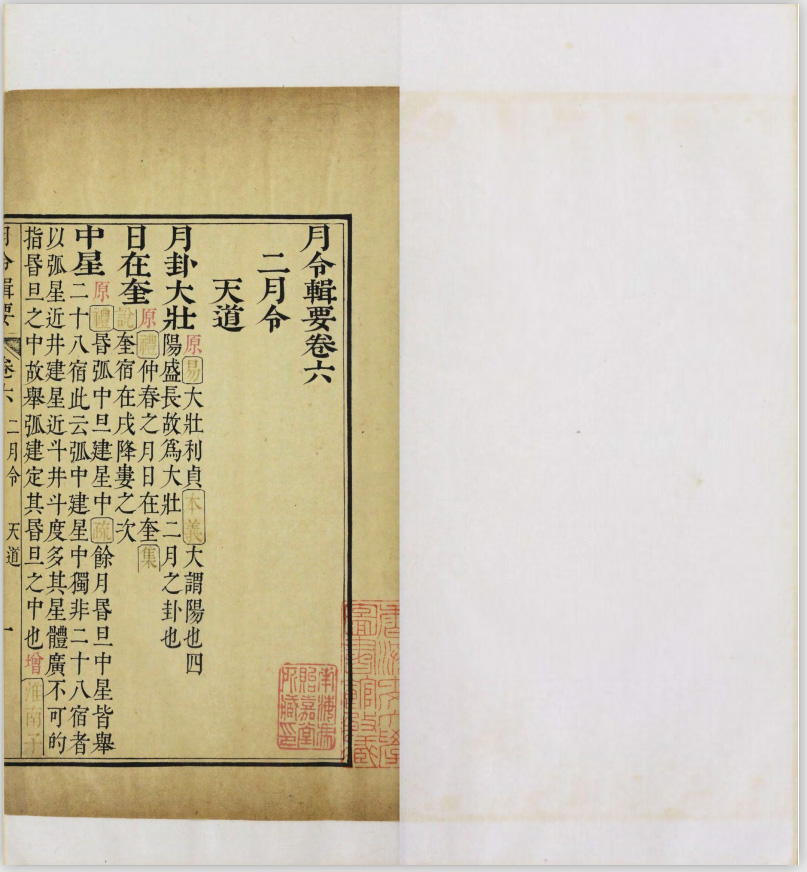 月令輯要卷六
二月令
天道
月卦大壯原易大壯利貞本義大謂陽也四
陽盛長故爲大壯二月之卦也
日在奎原禮仲春之月日在奎集
說奎宿在戌降婁之次
中星原禮昬弧中旦建星中疏餘月昬旦中星皆舉
二十八宿此云弧中建星中獨非二十八宿者
以弧星近井建星近斗井斗度多其星體廣不可的
指昬旦之中故舉弧建定其昬旦之中也增淮南子
月令輯要 卷六 二月令 天道 一